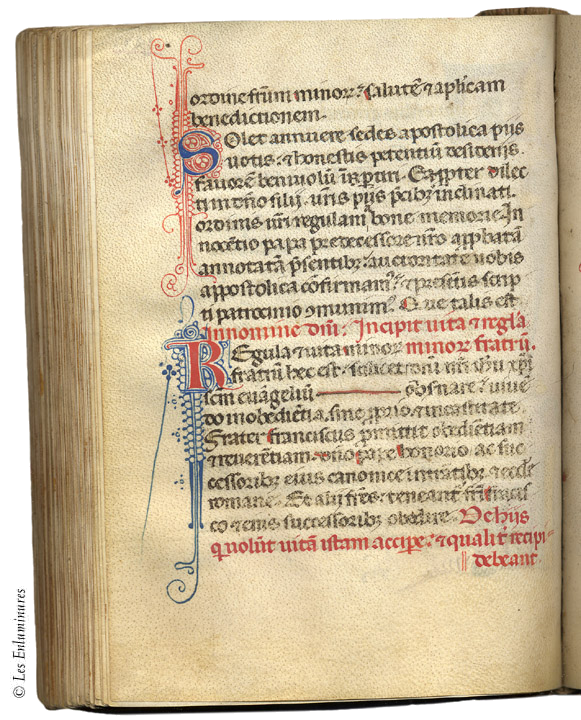 ordine frūm minorꝝ salutē ⁊ aplicam
benedictionem.
Solet annuere sedes apostolica piis
uotis. ⁊ honestis petentiū desideriis
fauorē beniuolū īpertiri. Eapropter dilec
ti in dño filij. uris piis pcibꝫ inclinati.
ordinis uri regulam bone memorie. In
nocētio papa predecessore nro approbatā
annotatā psentibꝫ. auctoritate uobis
appostolica confirmamꝰ. ⁊ presentis scrip
ti patrocinio ꝯmunimꝰ. Que talis est
In nomine dni. Incipit uita ⁊ regla
Regula ⁊ uita minor minor fratrū.
fratrū hec est. scilicet dni nri ihu xpi
scm euāgeliū obseruare. uiue
do in obediētia. sine proprio. ⁊ in castitate
Frater franciscus promittit obedientiam
⁊ reuerētiam. dño pape honorio ac suc
cessoribꝫ eius canonice intrātibꝫ. ⁊ ecclē
romane. Et alij frēs. teneant fri francis
co ⁊ eius successoribꝫ obedire. De hijs
qui uolūt uitā istam accipe. ⁊ qualitr recipi
debeant
© Les Enluminures